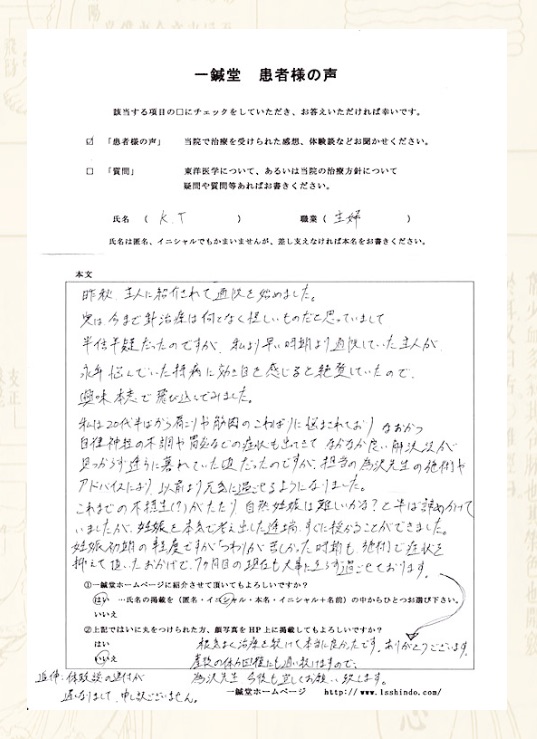 一鍼堂 患者様の声
該当する項目の□にチェックをしていただき、お答えいただければ幸いです。
☑ 「患者様の声」 当院で治療を受けられた感想、体験談などお聞かせください。
□ 「質問」 東洋医学について、あるいは当院の治療方針について
疑問や質問等あればお書きください。
氏名 ( K.T ) 職業 ( 主婦 )
氏名は匿名、イニシャルでもかまいませんが、差し支えなければ本名をお書きください。
本文
昨秋、主人に紹介されて通院を始めました。
実は、今まで針治療は何となく怪しいものだと思っていまして
半信半疑だったのですが、私より早い時期より通院していた主人が
永年悩んでいた持病に効き目を感じると絶賛していたので、
興味本意で飛び込んでみました。
私は20代半ばから肩こりや筋肉のこわばりに悩まされており なおかつ
自律神経の不調や胃炎などの症状も出てきて なかなか良い解決法が
見つからず途方に暮れていた頃だったのですが、担当の為沢先生の施術や
アドバイスにより、以前より元気に過ごせるようになりました。
これまでの不摂生(?)がたたり 自然妊娠は難しいかな?と半ば諦めかけて
いましたが、妊娠を本気で考え出した途端、すぐに授かることができました。
妊娠初期の 軽度ですが「つわり」が苦しかった時期も、施術で症状を
抑えて頂いたおかげで、7ヶ月目の現在も大事に至らず過ごせております。
①一鍼堂ホームページに紹介させて頂いてもよろしいですか?
はい …氏名の掲載を(匿名・イニシャル・本名・イニシャル+名前)の中からひとつお選び下さい。
いいえ
②上記ではいに丸をつけられた方、顔写真をHP上に掲載してもよろしいですか?
はい
いいえ
根気よく治療を続けて本当に良かったです。ありがとうございます。
産後の体力回復にも通い続けますので、
為沢先生 今後も宜しくお願い致します。
追伸:体験談の送付が
遅くなりまして、申し訳ございません。
一鍼堂ホームページ http://www.1sshindo.com/